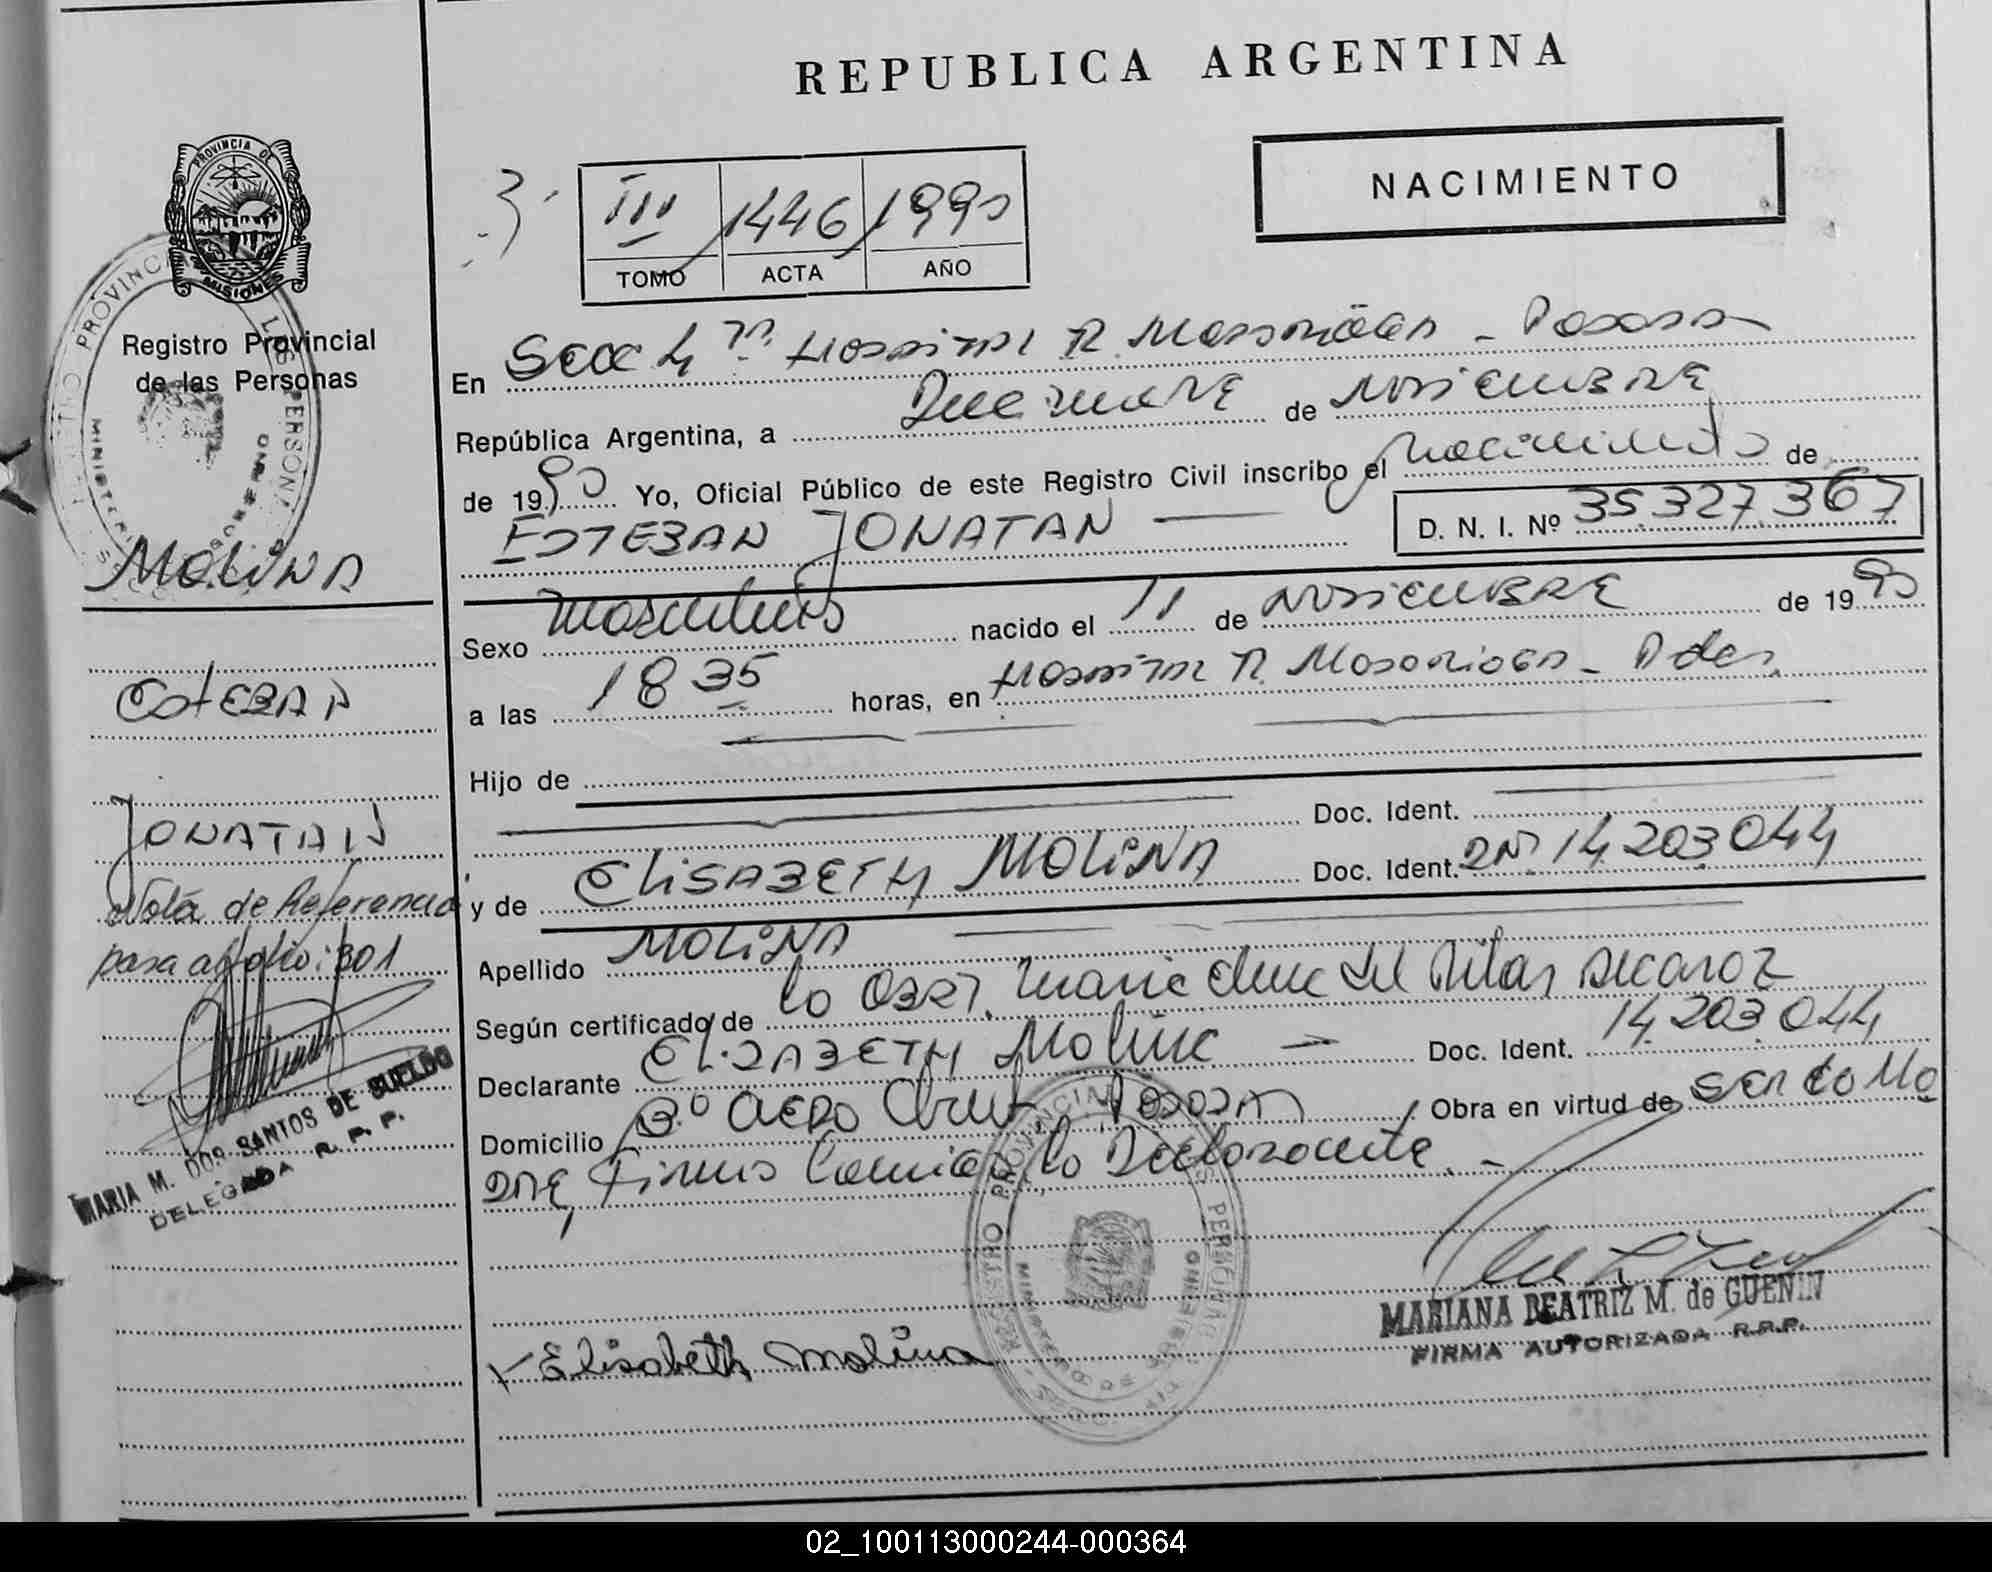 REPUBLICA ARGENTINA
NACIMIENTO
III 1446 1990
TOMO ACTA AÑO
PROVINCIA DE
MISIONES
Registro Provincial
de las Personas
En Secc 4ª Hospital R. Madariaga - Posadas
República Argentina, a Diecinueve de Noviembre
de 1990 Yo, Oficial Público de este Registro Civil inscribo el Nacimiento de
ESTEBAN JONATAN
D. N. I. Nº 35.327.367
MOLINA
Sexo Masculino nacido el 11 de Noviembre de 1990
a las 18 35 horas, en Hospital R. Madariaga - Pdas.
Hijo de
Doc. Ident.
y de ELISABETH MOLINA Doc. Ident. DNI 14.203.044
Apellido MOLINA
Según certificado de la Obst. Maria del Pilar
Declarante ELISABETH Molina Doc. Ident. 14.203.044
Domicilio Bº Aero Club, Posadas Obra en virtud de ser la Madre
Firma Conmigo la Declarante. -
Elisabeth Molina
MARIANA BEATRIZ M. de GUENIN
FIRMA AUTORIZADA R.P.P.
ESTEBAN
JONATAN
Nota de Referencia
pasa a folio: 301
MARIA M. DOS SANTOS DE SUELDO
DELEGADA R. P. P.
02_100113000244-000364